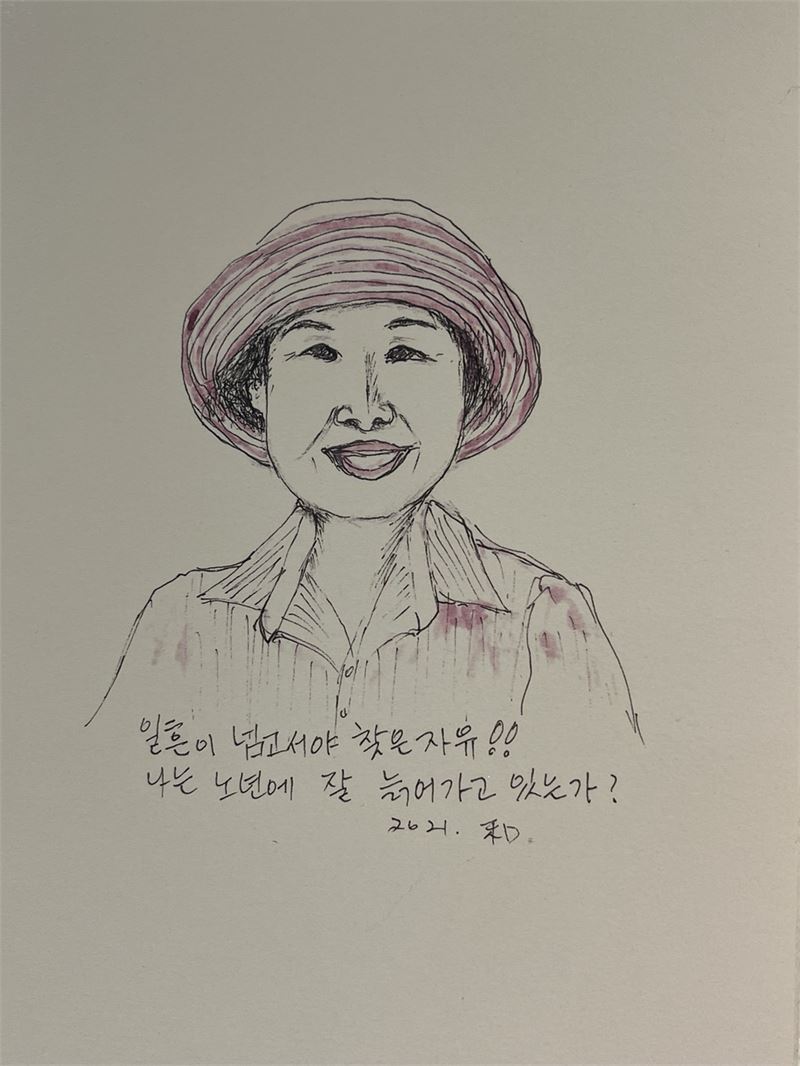 일흔이 넘고서야 찾은 자유!!
나는 노년에 잘 늙어가고 있는가?
2021. 和.